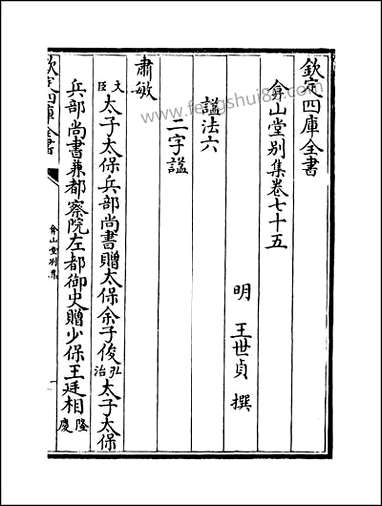 欽定四庫全書
弇山堂别集卷七十五
明 王世貞 撰
諡法六
二字諡
肅敏
文臣太子太保兵部尚書贈太保余子俊弘治太子太保
兵部尚書兼都察院左都御史贈少保王廷相隆慶
欽定四庫全書
弇山堂别集
一
www.fengshui86.com